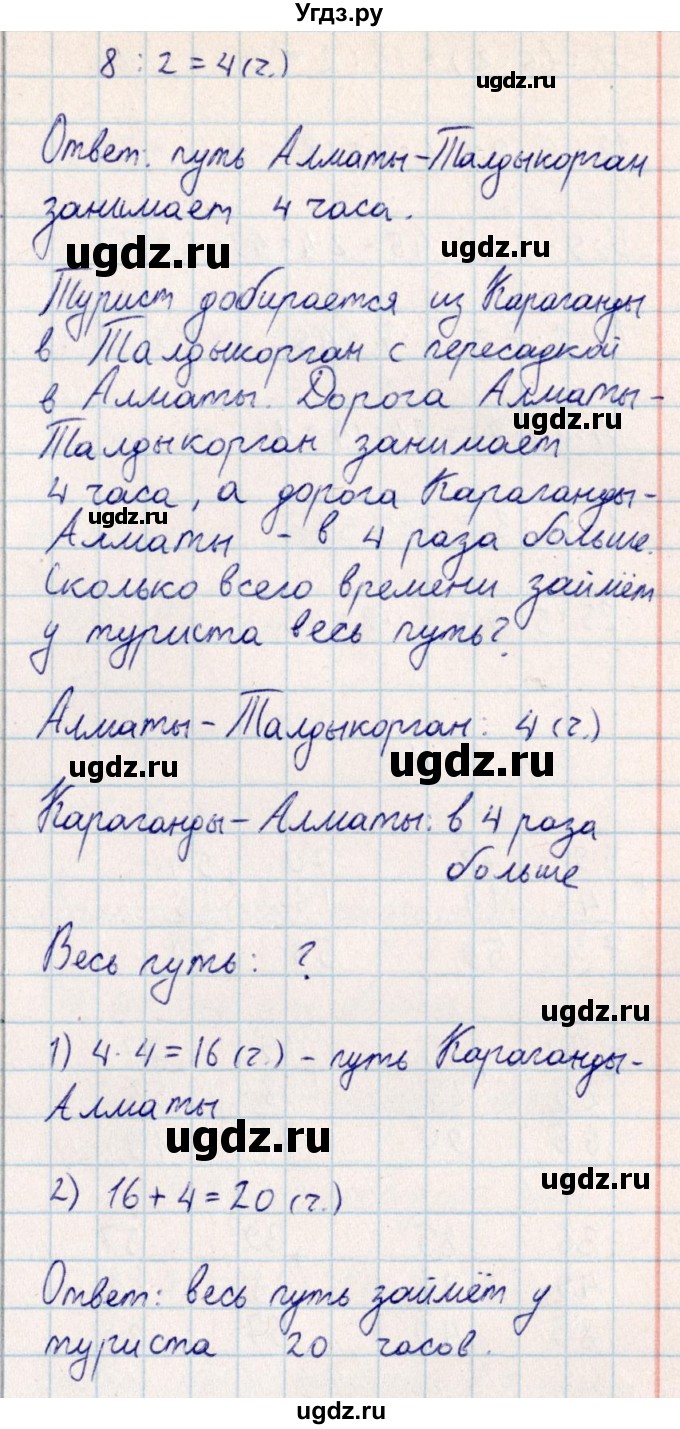 Угдз.ру
8 : 2 = 4 (ч.)
ugdz.ru
Ответ: путь Алматы-Талдыкорган
занимает 4 часа.
ugdz.ru
ugdz.ru
Турист добирается из Караганды
в Талдыкорган с пересадкой
в Алматы. Дорога Алматы-
ugdz.ru
Талдыкорган занимает
4 часа, а дорога Караганды-
ugdz.ru
Алматы - в 4 раза больше.
Сколько всего времени займёт
у туриста весь путь?
Алматы - Талдыкорган: 4 (ч.)
ugdz.ru
ugdz.ru
Караганды - Алматы: в 4 раза
больше
Весь путь: ?
ugdz.ru
1) 4 · 4 = 16 (ч.) - путь Караганды-
Алматы
ugdz.ru
ugdz.ru
2) 16 + 4 = 20 (ч.)
Ответ: весь путь займёт у
туриста 20 часов.
ugdz.ru